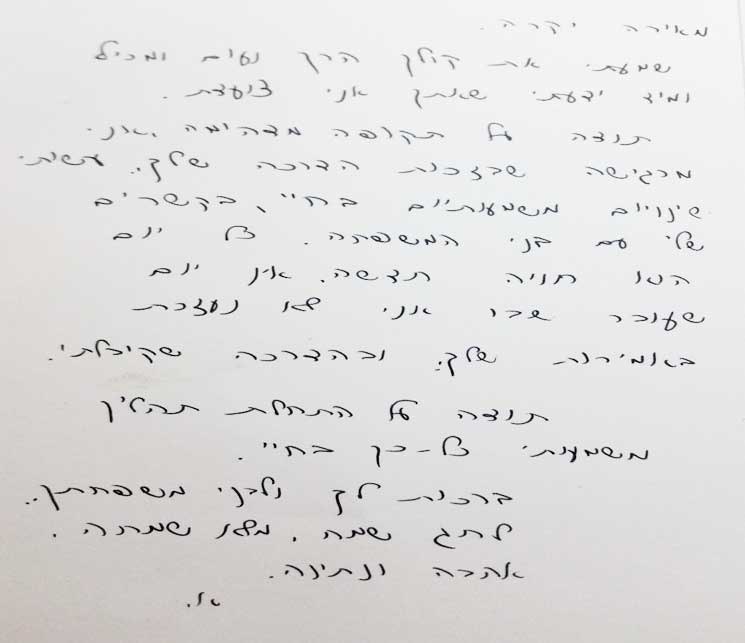 מאירה יקרה.
שמעתי את קולך הרך נעים ומכיל
ומיד ידעתי שאתך אני צועדת.
תודה על תקופה מדהימה, אני
מרגישה שבזכות הדרכה שלך.. עשיתי
שינויים משמעותיים בחיי, בקשרים
שלי עם בני המשפחה. כל יום
הוא חויה חדשה. אין יום
שעובר שבו אני לא נעזרת
באמירות שלך. ובהדרכה שקיבלתי.
תודה על התחלת תהליך
משמעותי כל-כך בחיי.
ברכות לך ולבני משפחתך..
לחג שמח, מלא שמחה.
אהבה ונתינה.
א.